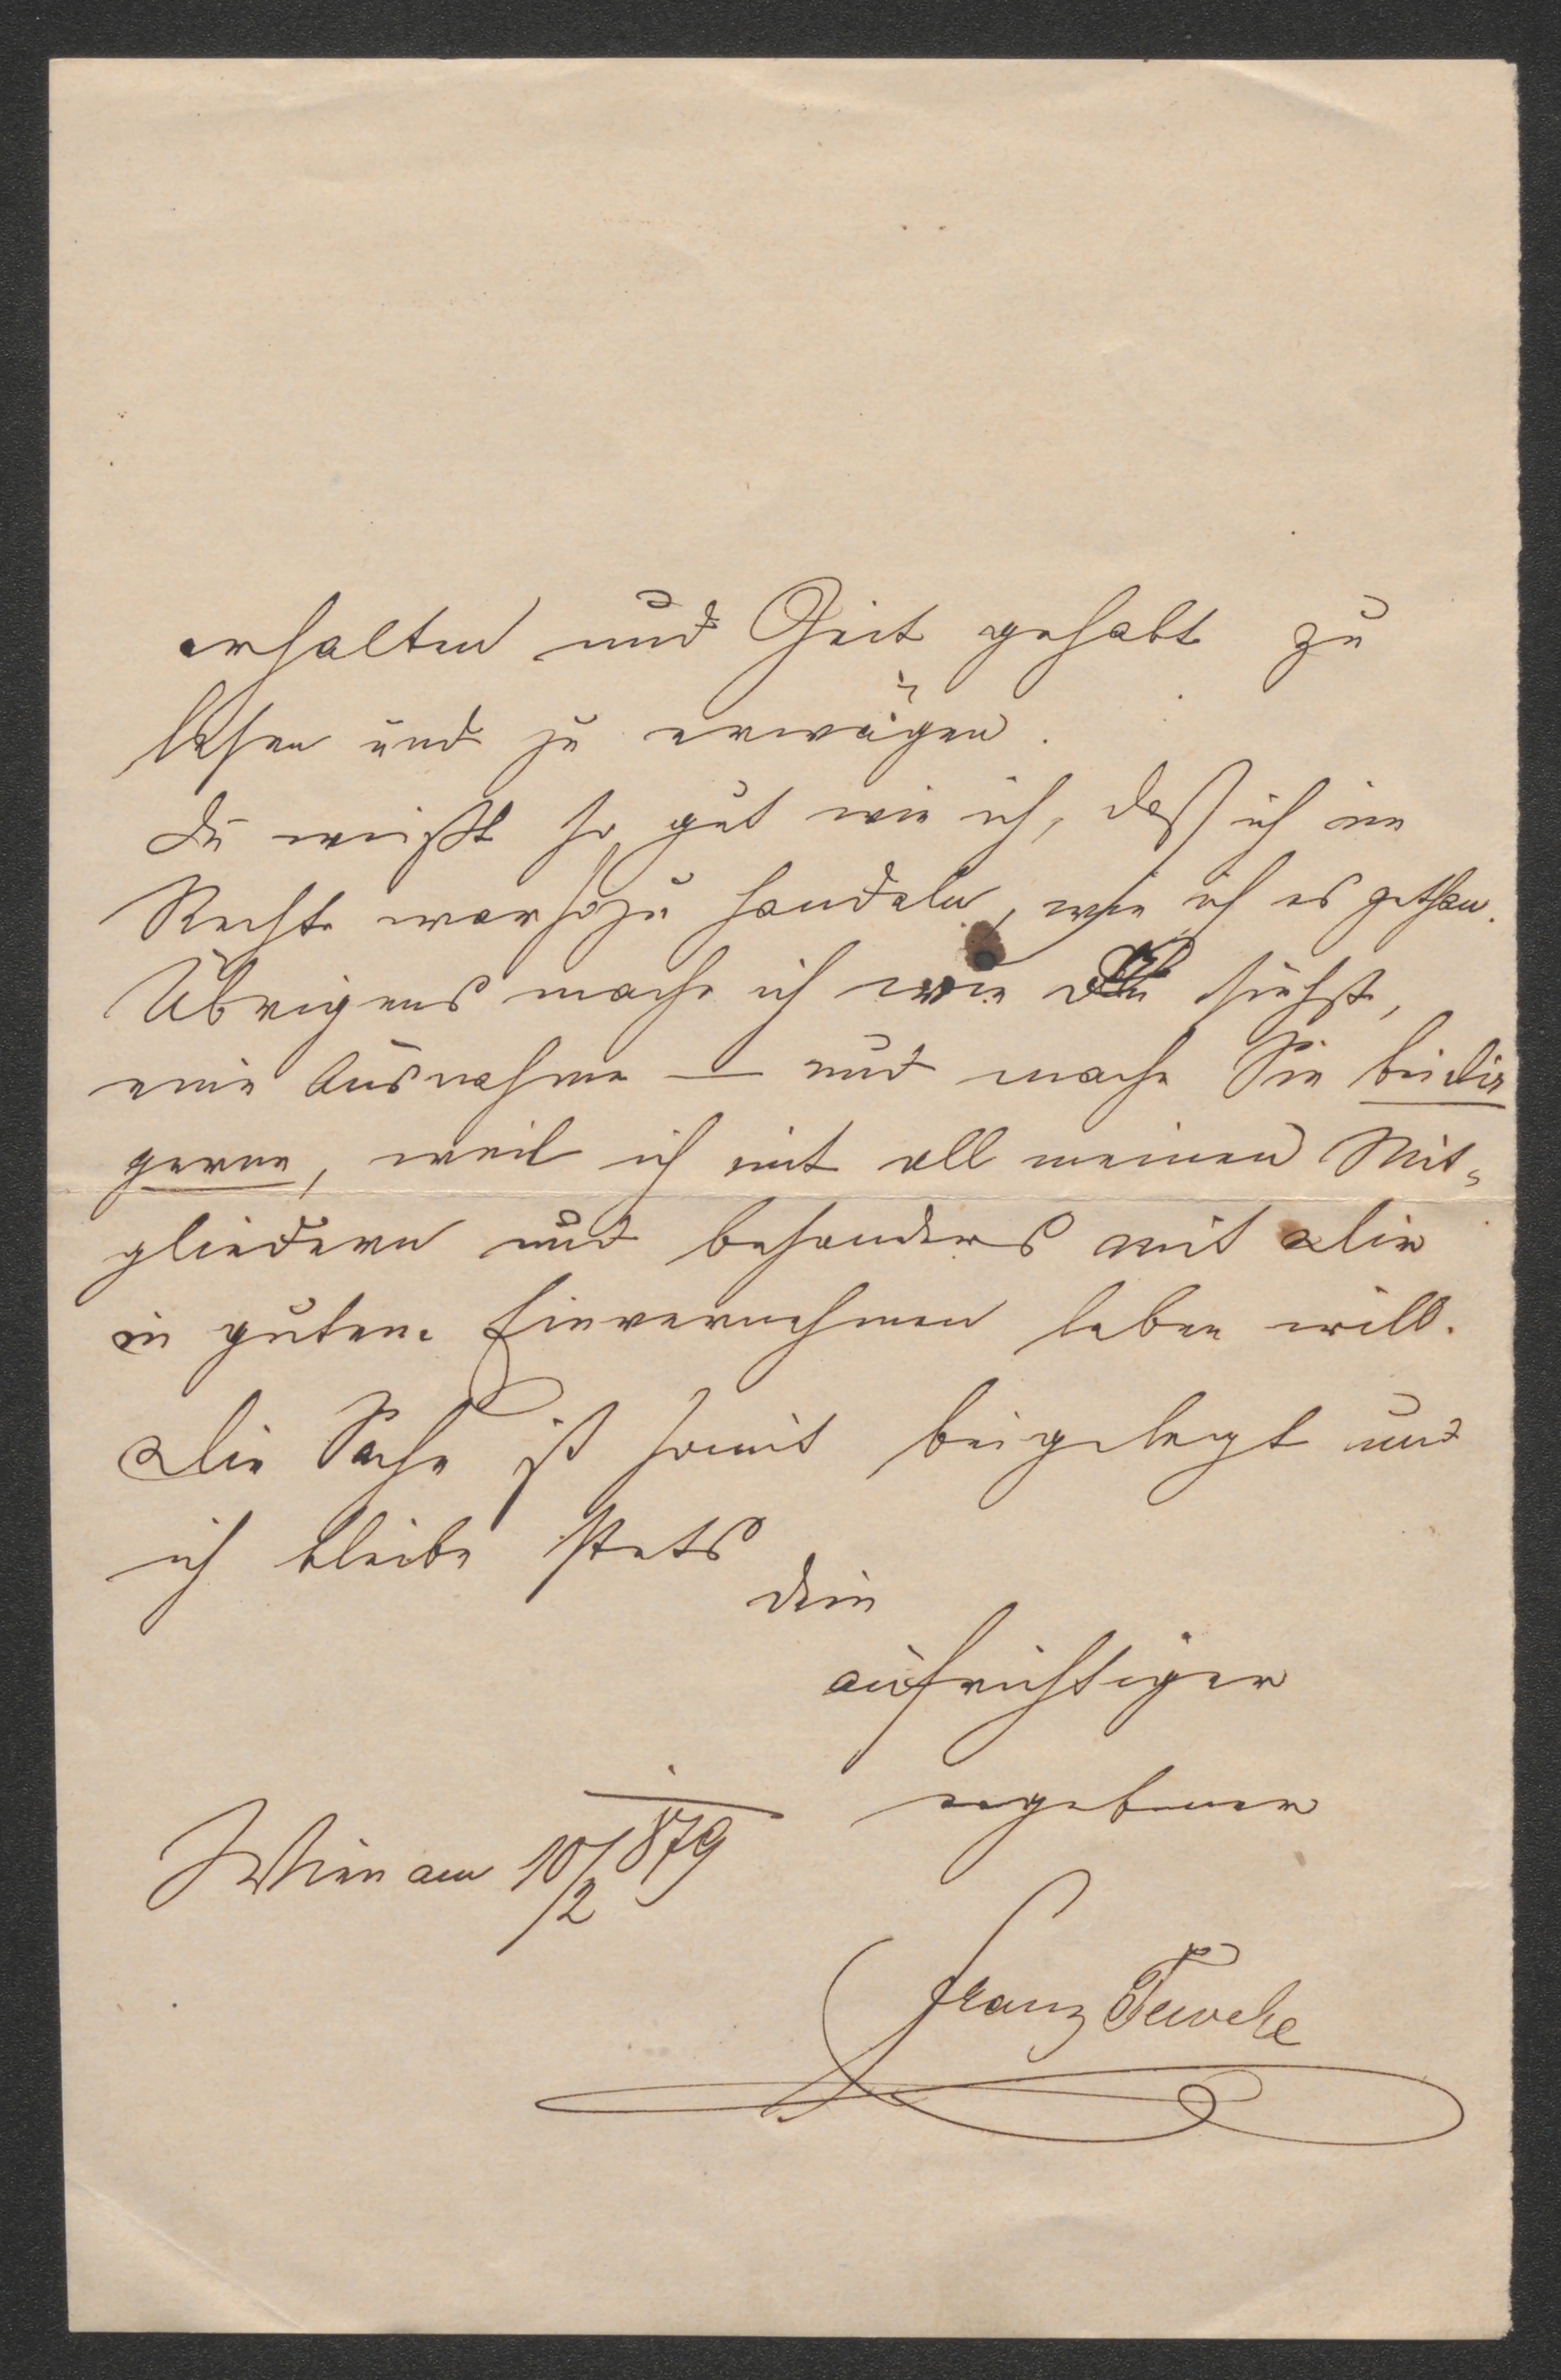 erhalten und Zeit gehabt zu
lesen und zu erwägen.
Du weißt so gut wie ich, daß ich im
Rechte war so zu handeln, wie ich es gethan.
Übrigens mache ich wie Du siehst,
eine Ausnahme — und mache Sie bei dir
gerne, weil ich mit all meinen Mit-
gliedern und besonders mit Dir
in gutem Einvernehmen leben will.
Die Sache ist somit beigelegt und
ich bleibe stets
Dein
aufrichtiger
ergebener
Wien am 10/2 879
Franz Tewele